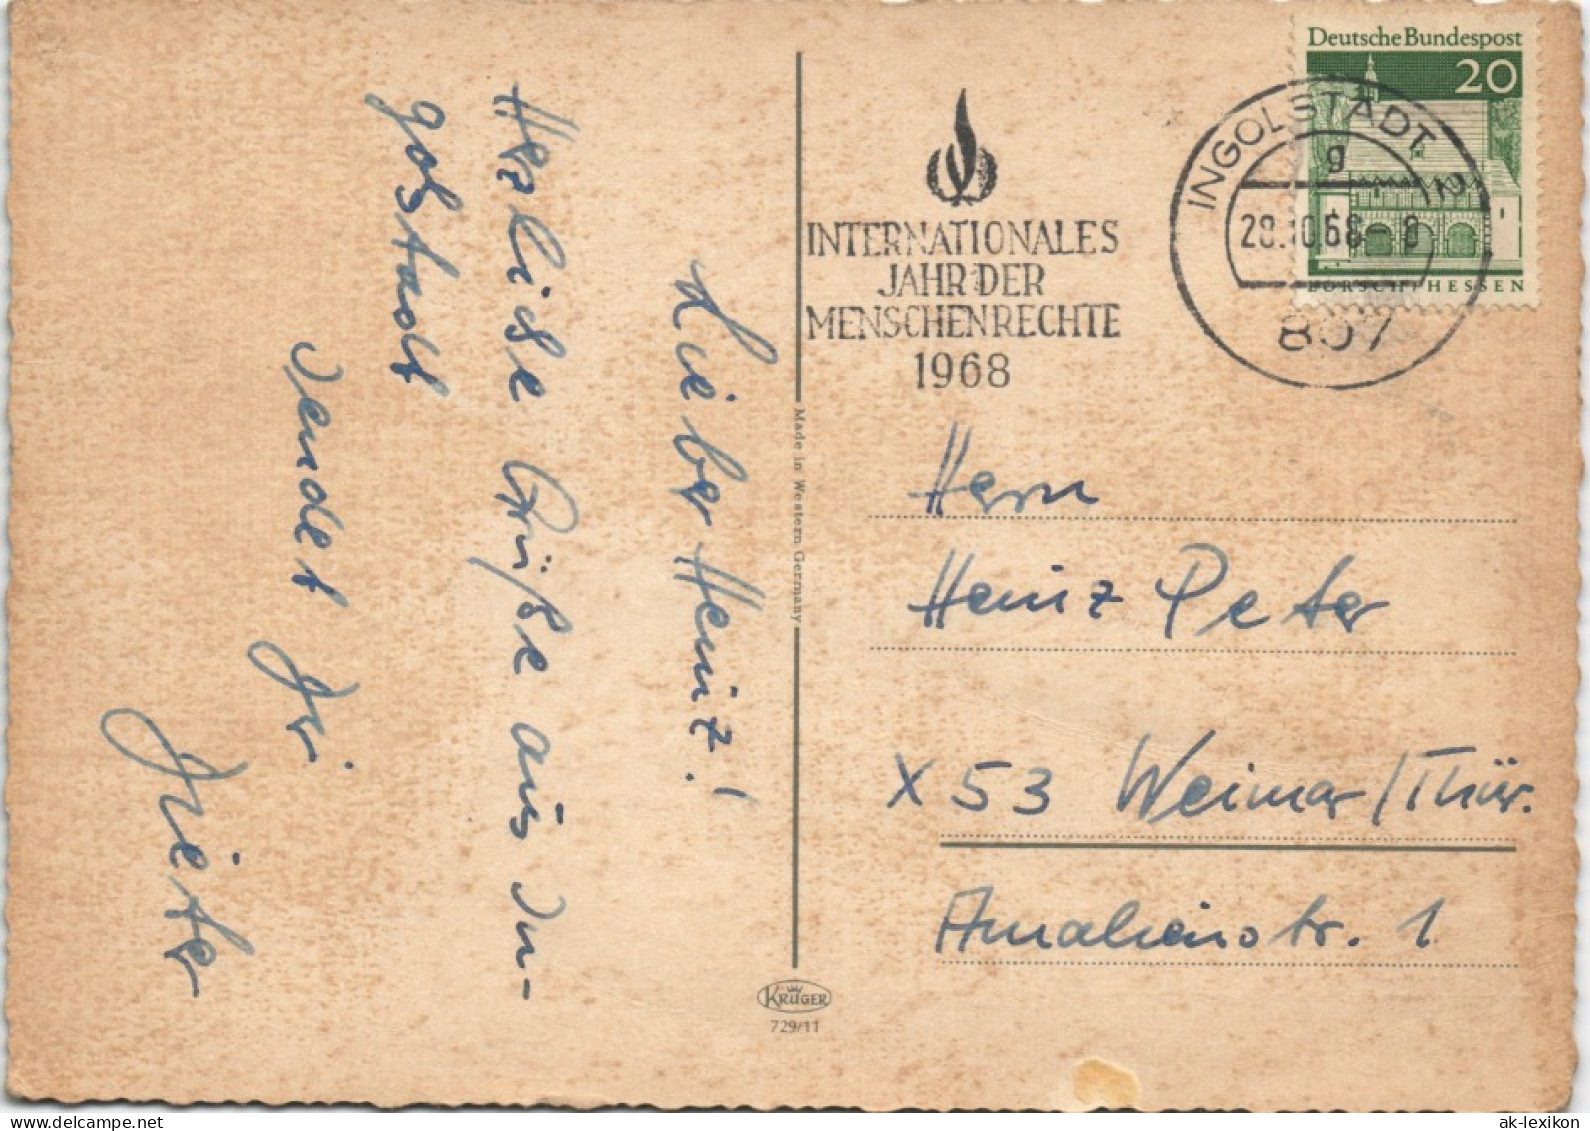 Lieber Heinz!
Herzliche Grüße aus In-
golstadt
sendet Dir
Dieter
INTERNATIONALES
JAHR DER
MENSCHENRECHTE
1968
Deutsche Bundespost
20
LORSCH/HESSEN
INGOLSTADT 2
g
28.10.68 - 8
807
Made in Western Germany
Herrn
Heinz Peter
X 53 Weimar/Thür.
Amalienstr. 1
KRÜGER
729/11
delcampe.net
ak-lexikon